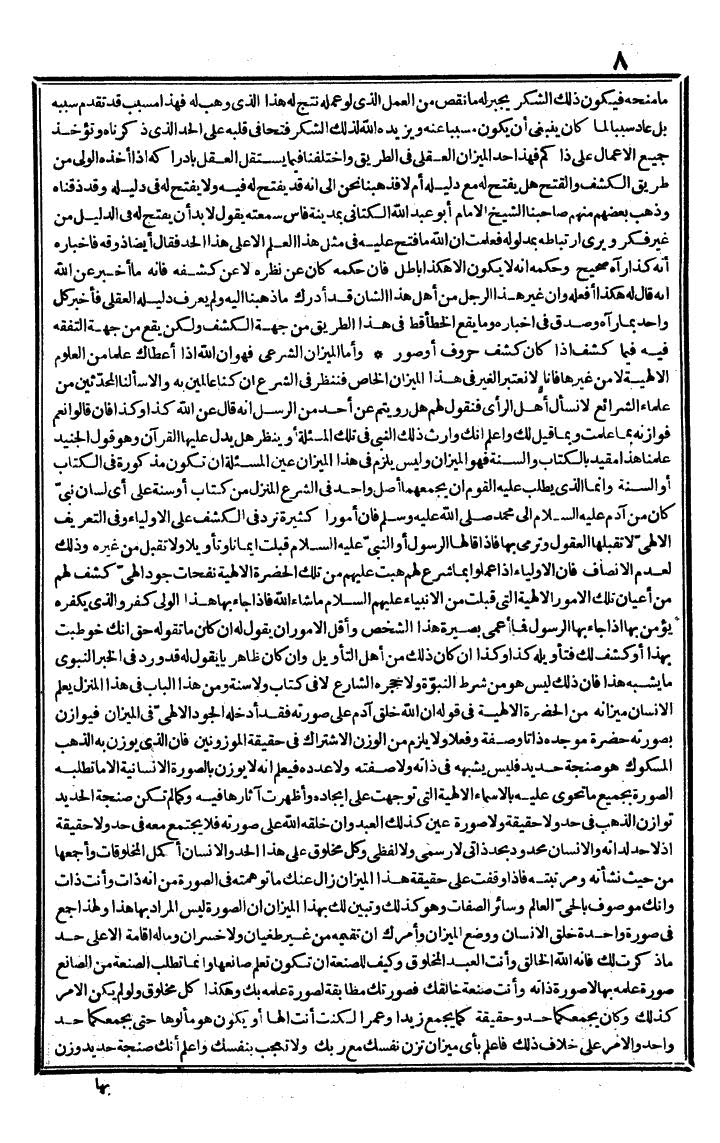 ٨
مامنحه فيكون ذلك الشكر يجبر له مانقص من العمل الذى لو عمله نتج له هذا الذى وهب له فهذا مسبب قد تقدم سببه
بل عاد سببا لما كان ينبغى أن يكون مسببا عنه ويزيده الله لذلك الشكر فتحا فى قلبه على الحد الذى ذكرناه وتؤخذ
جميع الاعمال على ذا كم فهذا حد الميزان العقلى فى الطريق واختلفنا فيما يستقل العقل بادراكه اذا أخذه الولى من
طريق الكشف والفتح هل يفتح له مع دليله أم لا فذهبنا نحن الى انه قد يفتح له فيه ولا يفتح له فى دليله وقد ذقناه
وذهب بعضهم منهم صاحبنا الشيخ الامام أبو عبد الله الكتانى بمدينة فاس سمعته يقول لابد أن يفتح له فى الدليل من
غير فكر ويرى ارتباطه بمدلوله فعلمت ان الله مافتح عليه فى مثل هذا العلم الاعلى هذا الحد فقال أيضا ذوقه فاخباره
أنه كذا رآه صحيح وحكمه انه لا يكون الا هكذا باطل فان حكمه كان عن نظره لا عن كشفه فانه ماأخبر عن الله
انه قال له هكذا أفعله وان غير هذا الرجل من أهل هذا الشان قد أدرك ماذهبنا اليه ولم يعرف دليله العقلى فأخبر كل
واحد بمارآه وصدق فى اخباره ومايقع الخطأ قط فى هذا الطريق من جهة الكشف ولكن يقع من جهة التفقه
فيه فيما كشف اذا كان كشف حروف أو صور * وأما الميزان الشرعى فهو ان الله اذا أعطاك علما من العلوم
الالهية لا من غيرها فانا لانعتبر الغير فى هذا الميزان الخاص فننظر فى الشرع ان كنا عالمين به والا سألنا المحدّثين من
علماء الشرائع لانسأل أهل الرأى فنقول لهم هل رويتم عن أحد من الرسل انه قال عن الله كذا وكذا فان قالوا نعم
فوازنه بما علمت وبما قيل لك واعلم انك وارث ذلك النبى فى تلك المسئلة أو ينظر هل يدل عليها القرآن وهو قول الجنيد
علمنا هذا مقيد بالكتاب والسنة فهو الميزان وليس يلزم فى هذا الميزان عين المسئلة ان تكون مذكورة فى الكتاب
أو السنة وانما الذى يطلب عليه القوم ان يجمعهما أصل واحد فى الشرع المنزل من كتاب أوسنة على أى لسان نبىّ
كان من آدم عليه السلام الى محمد صلى الله عليه وسلم فان أمورا كثيرة ترد فى الكشف على الاولياء وفى التعريف
الالهىّ لا تقبلها العقول وترمى بها فاذا قالها الرسول أو النبىّ عليه السلام قبلت ايمانا وتأويلا ولا تقبل من غيره وذلك
لعدم الانصاف فان الاولياء اذا عملوا بما شرع لهم هبت عليهم من تلك الحضرة الالهية نفحات جود الهىّ كشف لهم
من أعيان تلك الامور الالهية التى قبلت من الانبياء عليهم السلام ماشاء الله فاذا جاء بها هذا الولى كفر والذى يكفره
يؤمن بها اذا جاء بها الرسول فما أعمى بصيرة هذا الشخص وأقل الامور ان يقول له ان كان ماتقوله حق انك خوطبت
بهذا أو كشف لك فتأويله كذا وكذا ان كان ذلك من أهل التأويل وان كان ظاهريا يقول له قد ورد فى الخبر النبوى
مايشبه هذا فان ذلك ليس هو من شرط النبوّة ولا حجره الشارع لا فى كتاب ولا سنة ومن هذا الباب فى هذا المنزل يعلم
الانسان ميزانه من الحضرة الالهية فى قوله ان الله خلق آدم على صورته فقد أدخله الجود الالهىّ فى الميزان فيوازن
بصورته حضرة موجده ذاتا وصفة وفعلا ولا يلزم من الوزن الاشتراك فى حقيقة الموزونين فان الذى يوزن به الذهب
المسكوك هو صنجة حديد فليس يشبهه فى ذاته ولا صفته ولا عدده فيعلم انه لا يوزن بالصورة الانسانية الا ماتطلبه
الصورة بجميع ماتحوى عليه بالاسماء الالهية التى توجهت على ايجاده وأظهرت آثارها فيه وكما لم تكن صنجة الحديد
توازن الذهب فى حد ولا حقيقة ولا صورة عين كذلك العبد وان خلقه الله على صورته فلا يجتمع معه فى حد ولا حقيقة
اذ لا حد لذاته والانسان محدود بحد ذاتى لا رسمى ولا لفظى وكل مخلوق على هذا الحد والانسان أكمل المخلوقات وأجمعها
من حيث نشأته ومرتبته فاذا وقفت على حقيقة هذا الميزان زال عنك ماتوهمته فى الصورة من انه ذات وأنت ذات
وانك موصوف بالحىّ العالم وسائر الصفات وهو كذلك وتبين لك بهذا الميزان ان الصورة ليس المراد بها هذا ولهذا جمع
فى صورة واحدة خلق الانسان ووضع الميزان وأمرك ان تقيمه من غير طغيان ولا خسران وماله اقامة الا على حد
ماذكرت لك فانه الله الخالق وأنت العبد المخلوق وكيف للصنعة ان تكون تعلم صانعها وانما تطلب الصنعة من الصانع
صورة علمه بها لاصورة ذاته وأنت صنعة خالقك فصورتك مطابقة لصورة علمه بك وهكذا كل مخلوق ولو لم يكن الامر
كذلك وكان يجمعكما حد وحقيقة كما يجمع زيدا وعمرا لكنت أنت الها أو يكون هو مألوها حتى يجمعكما حد
واحد والامر على خلاف ذلك فاعلم بأى ميزان تزن نفسك مع ربك ولا تعجب بنفسك واعلم أنك صنجة حديد وزن
بها